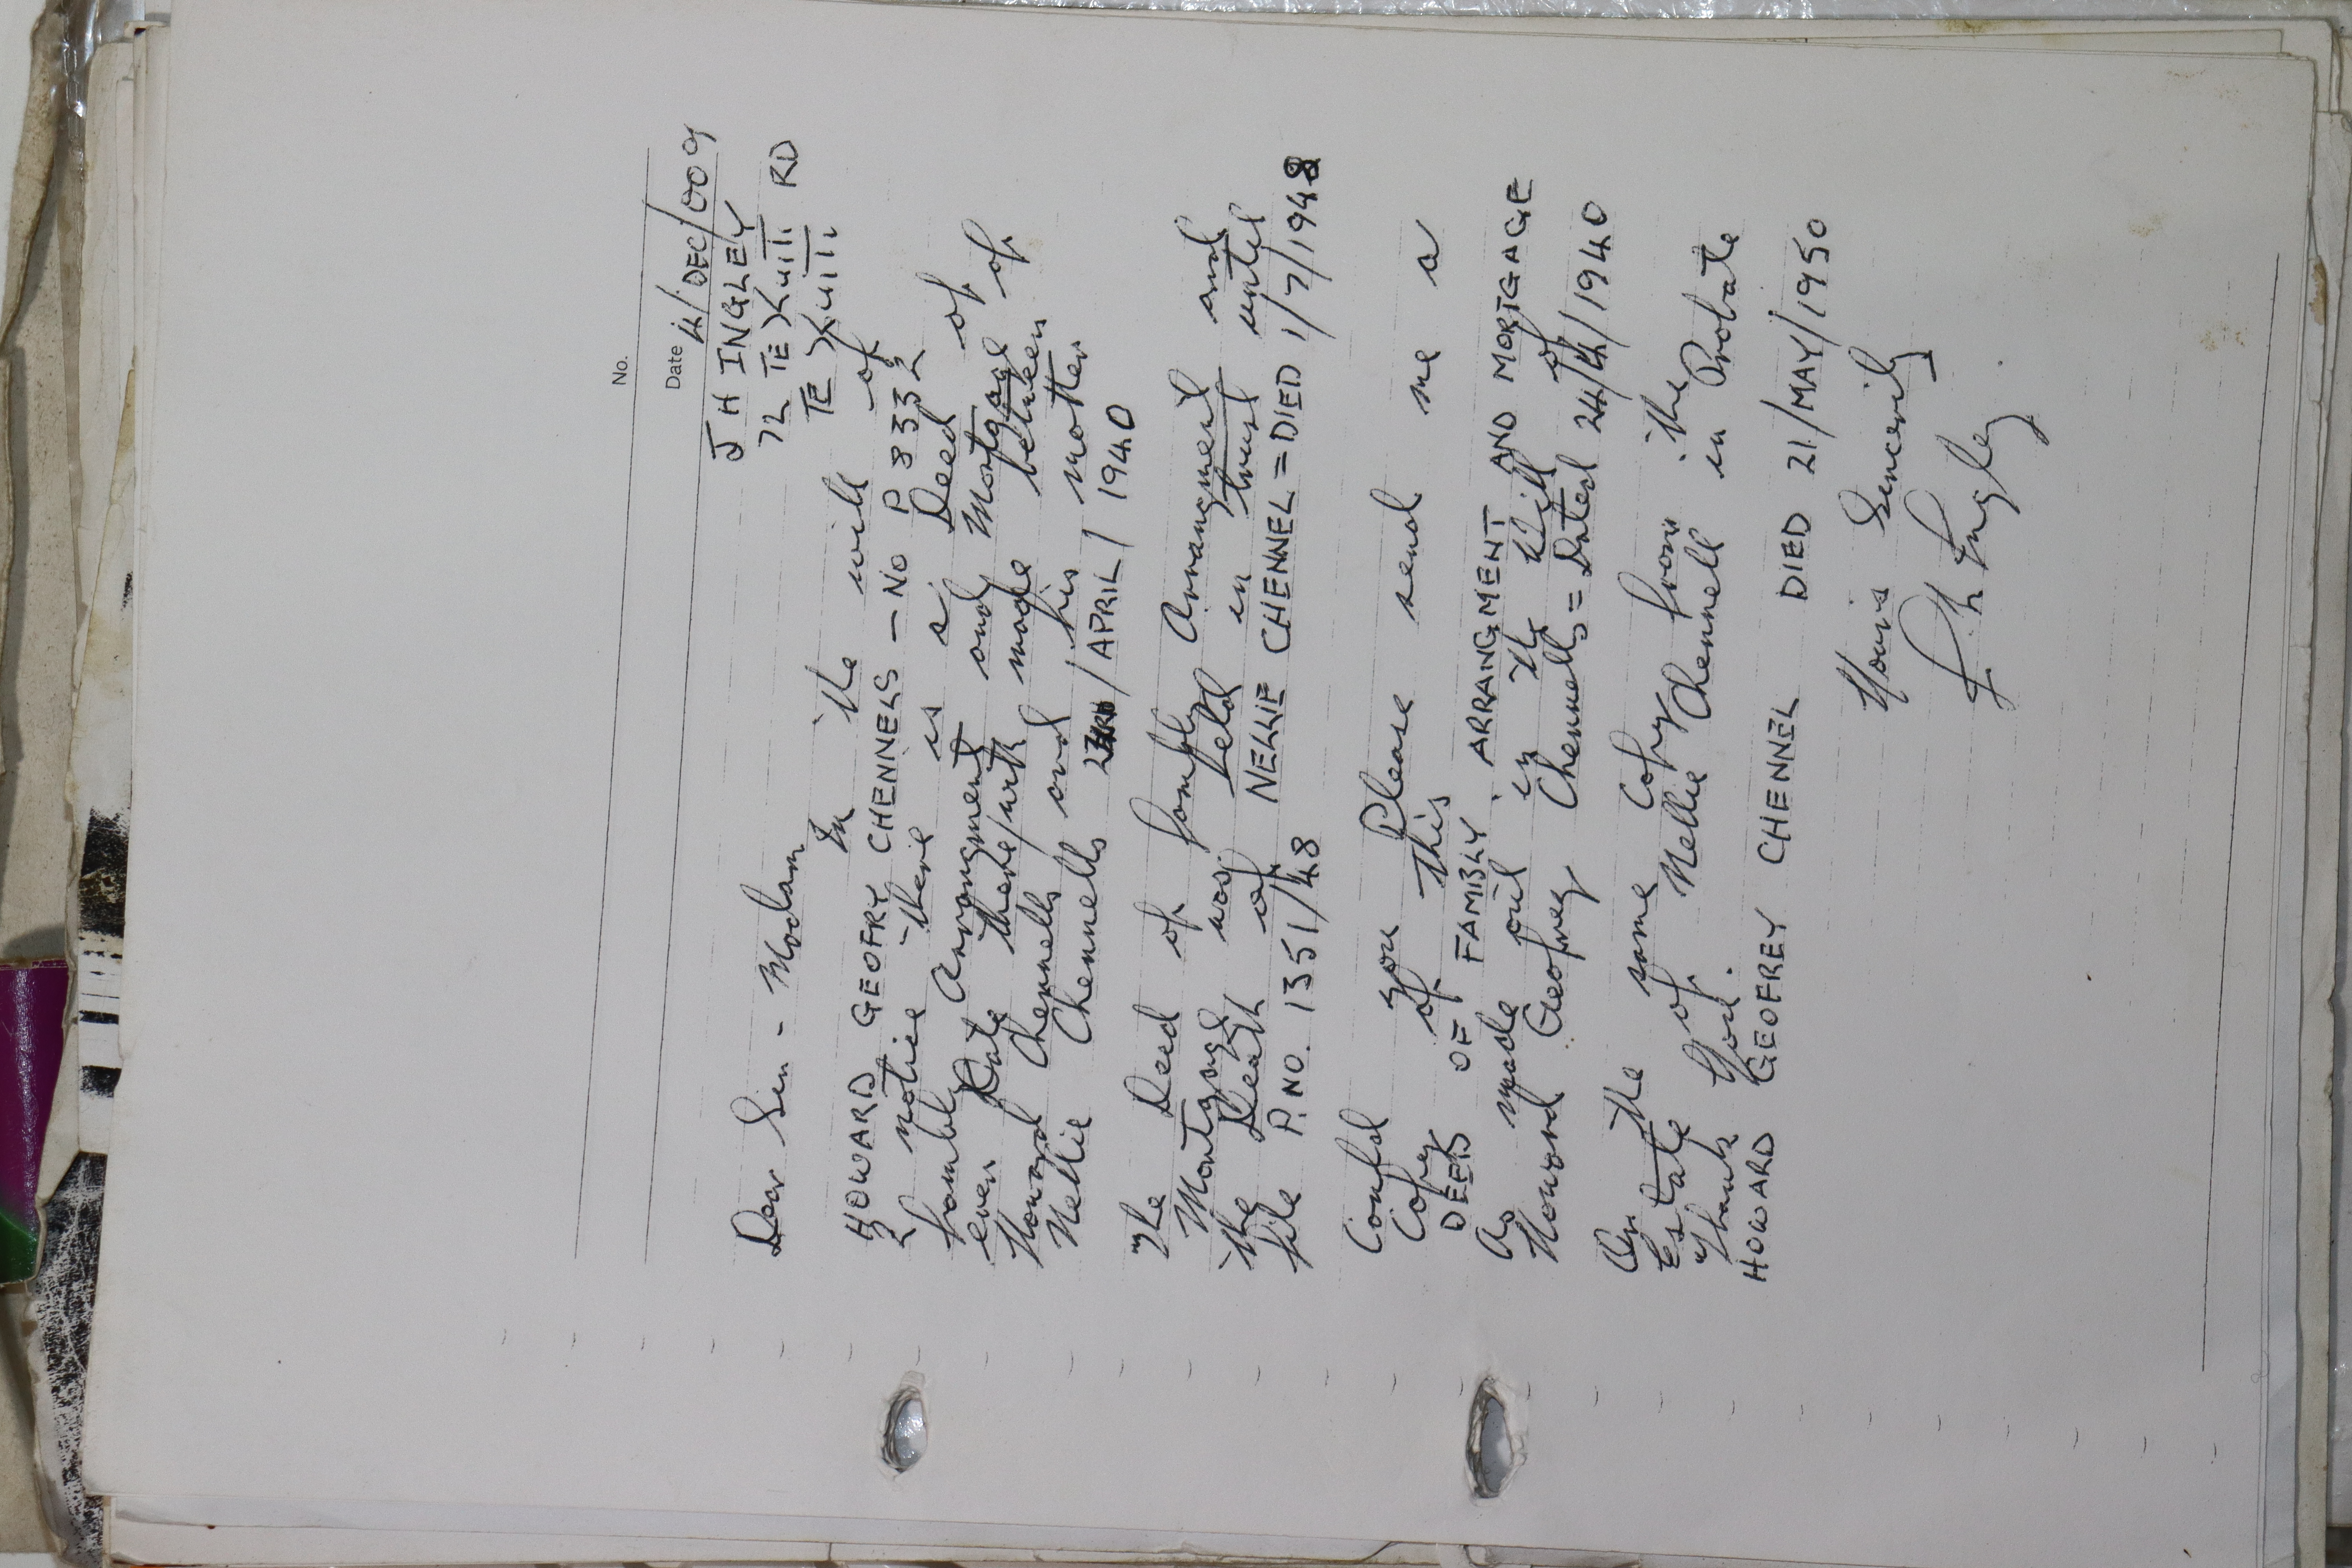 No.
Date 14/DEC/009
J H INGLEY
72 TE XUITI RD
TE XUITI.
Dear Sir - Madam
In the will of
HOWARD GEOFRY CHENNELS - NO P 8332
I notice there is a Deed of
family Arrangment and Mortgage of
even Date there/with made between
Howard Chennells and his mother
Nellie Chennells / APRIL / 1940
The Deed of family Arrangment and
Mortgage was held in trust until
the Death of NELLIE CHENNEL = DIED 1/7/1948
file P. NO. 1351/48
Could you Please send me a
Copy of this
DEEDS OF FAMILY ARRANGMENT AND MORTGAGE
As made out in the Will of
Howard Geofrey Chennells = Dated 24/4/1940
Or the same Copy from the
Estate of Nellie Chennell in Probate
Thank You.
HOWARD GEOFREY CHENNEL DIED 21/MAY/1950
Yours Sincerily
J H Ingley